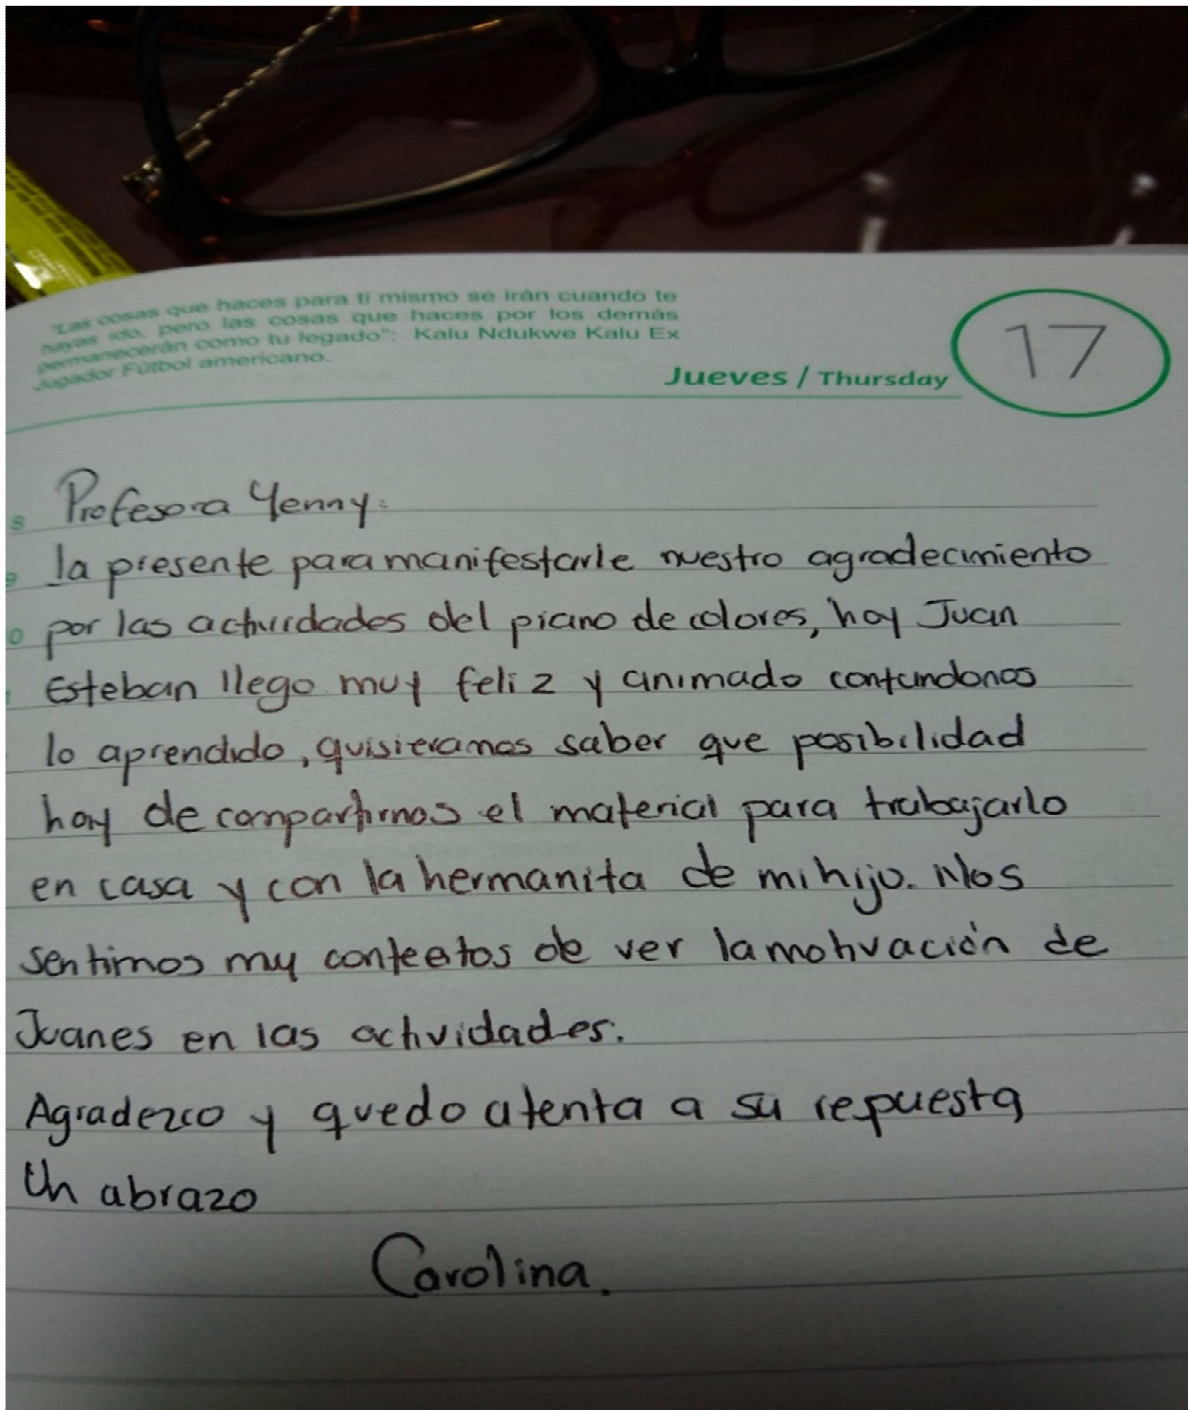 "Las cosas que haces para ti mismo se irán cuando te
hayas ido, pero las cosas que haces por los demás
permanecerán como tu legado": Kalu Ndukwe Kalu Ex
Jugador Fútbol americano.
Jueves / Thursday
17
Profesora Yenny:
la presente para manifestarle nuestro agradecimiento
por las actividades del piano de colores, hoy Juan
Esteban llego muy feliz y animado contandonos
lo aprendido, quisieramos saber que posibilidad
hay de compartirnos el material para trabajarlo
en casa y con la hermanita de mi hijo. Nos
sentimos my contentos de ver la motivación de
Juanes en las actividades.
Agradezco y quedo atenta a su repuesta
Un abrazo
Carolina.